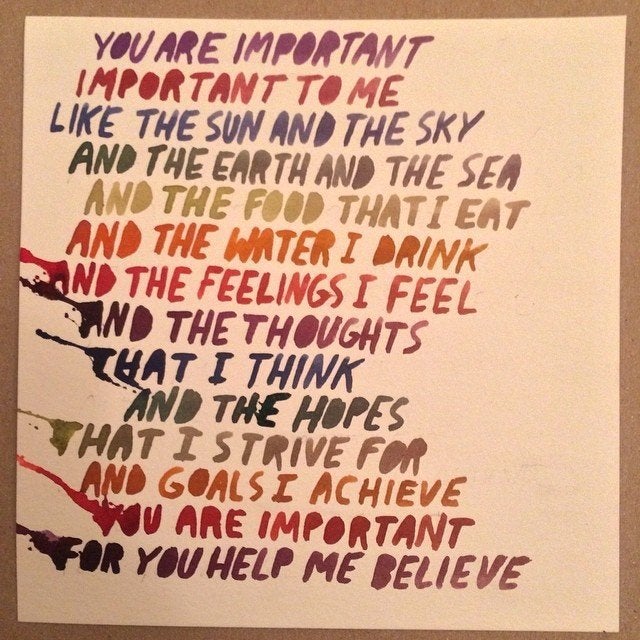 YOU ARE IMPORTANT
IMPORTANT TO ME
LIKE THE SUN AND THE SKY
AND THE EARTH AND THE SEA
AND THE FOOD THAT I EAT
AND THE WATER I DRINK
AND THE FEELINGS I FEEL
AND THE THOUGHTS
THAT I THINK
AND THE HOPES
THAT I STRIVE FOR
AND GOALS I ACHIEVE
YOU ARE IMPORTANT
FOR YOU HELP ME BELIEVE